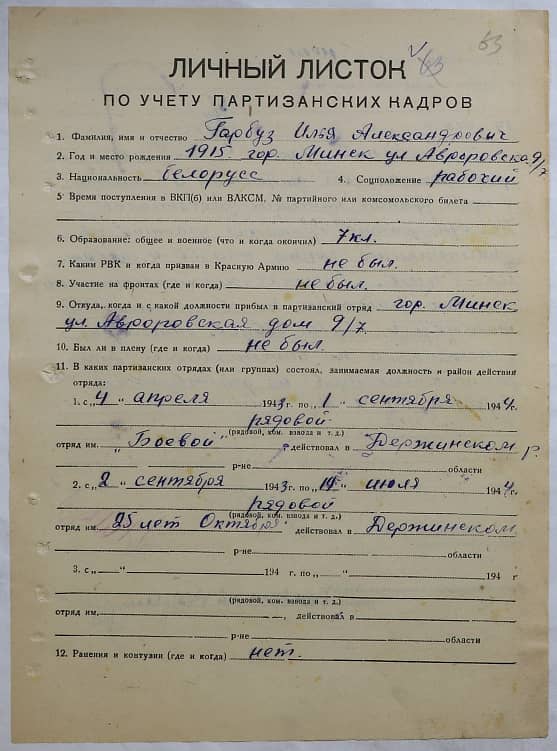 63
63
ЛИЧНЫЙ ЛИСТОК
ПО УЧЕТУ ПАРТИЗАНСКИХ КАДРОВ
1. Фамилия, имя и отчество Гарбуз Илья Александрович
2. Год и место рождения 1915 гор. Минск ул Авроровска 9/7
3. Национальность белорусс 4. Соцположение рабочий
5. Время поступления в ВКП(б) или ВЛКСМ, № партийного или комсомольского билета
6. Образование: общее и военное (что и когда окончил) 7 кл.
7. Каким РВК и когда призван в Красную Армию не был.
8. Участие на фронтах (где и когда) не был.
9. Откуда, когда и с какой должности прибыл в партизанский отряд гор. Минск
ул Авроровская дом 9/7
10. Был ли в плену (где и когда) не был
11. В каких партизанских отрядах (или группах) состоял, занимаемая должность и район действия
отряда:
1. с „4 " апреля 1943 г. по „1 " сентября 1944 г.
рядовой
(рядовой, ком. взвода и т. д.)
отряд им. „Боевой" действовал в Держинском р.
р-не области
2. с „2 " сентября 1943 г. по „14 " июля 1944 г.
рядовой
(рядовой, ком. взвода и т. д.)
отряд им. 25 лет Октября действовал в Держинском
р-не области
3. с „ " 194 г. по „ " 194 г
(рядовой, ком. взвода и т. д.)
отряд им. действовал в
р-не области
12. Ранения и контузии (где и когда) нет.